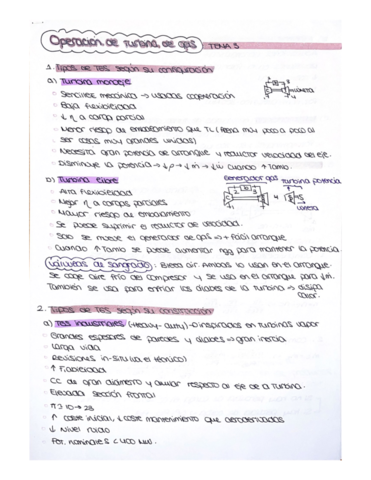 Operación de turbina de gas TEMA 3
1. Tipos de TGs según su configuración
a) Turbina monoeje
Sencillez mecánica → usadas cogeneración
Baja flexibilidad
↓ η a carga parcial
Menor riesgo de embalamiento que TL (Pasa muy poco a poco al
ser cosas muy grandes unidas)
Necesita gran potencia de arranque y reductor velocidad del eje.
Disminuye la potencia → ↓ρ → ↓ṁ → ↓Ẇ cuando ↑Tamb.
b) Turbina libre
Generador gas Turbina potencia
Alta flexibilidad
Mejor η a cargas parciales
Mayor riesgo de embalamiento
Se puede suprimir el reductor de velocidad.
Solo se mueve el generador de gas → Fácil arranque
Cuando ↑Tamb se puede aumentar ngg para mantener la potencia.
Válvulas de sangrado: Bleed air. Ambos lo usan en el arranque.
Se coge aire frío del compresor y se usa en el arranque para ↓ṁ.
También se usa para enfriar los álabes de la turbina → disipa
calor.
2. Tipos de TGs según su construcción
a) TGs industriales (Heavy-duty) → inspiradas en turbinas vapor
Grandes espesores de paredes y álabes → gran inercia
Larga vida
Revisiones in-situ (a el técnico)
↑ Fiabilidad
CC de gran diámetro y auxiliar respecto al eje de la turbina.
Elevada sección frontal
π 10 → 23
↑ coste inicial, ↓ coste mantenimiento que aeroderivadas
↓ Nivel ruido
Pot. nominales < 400 MW.